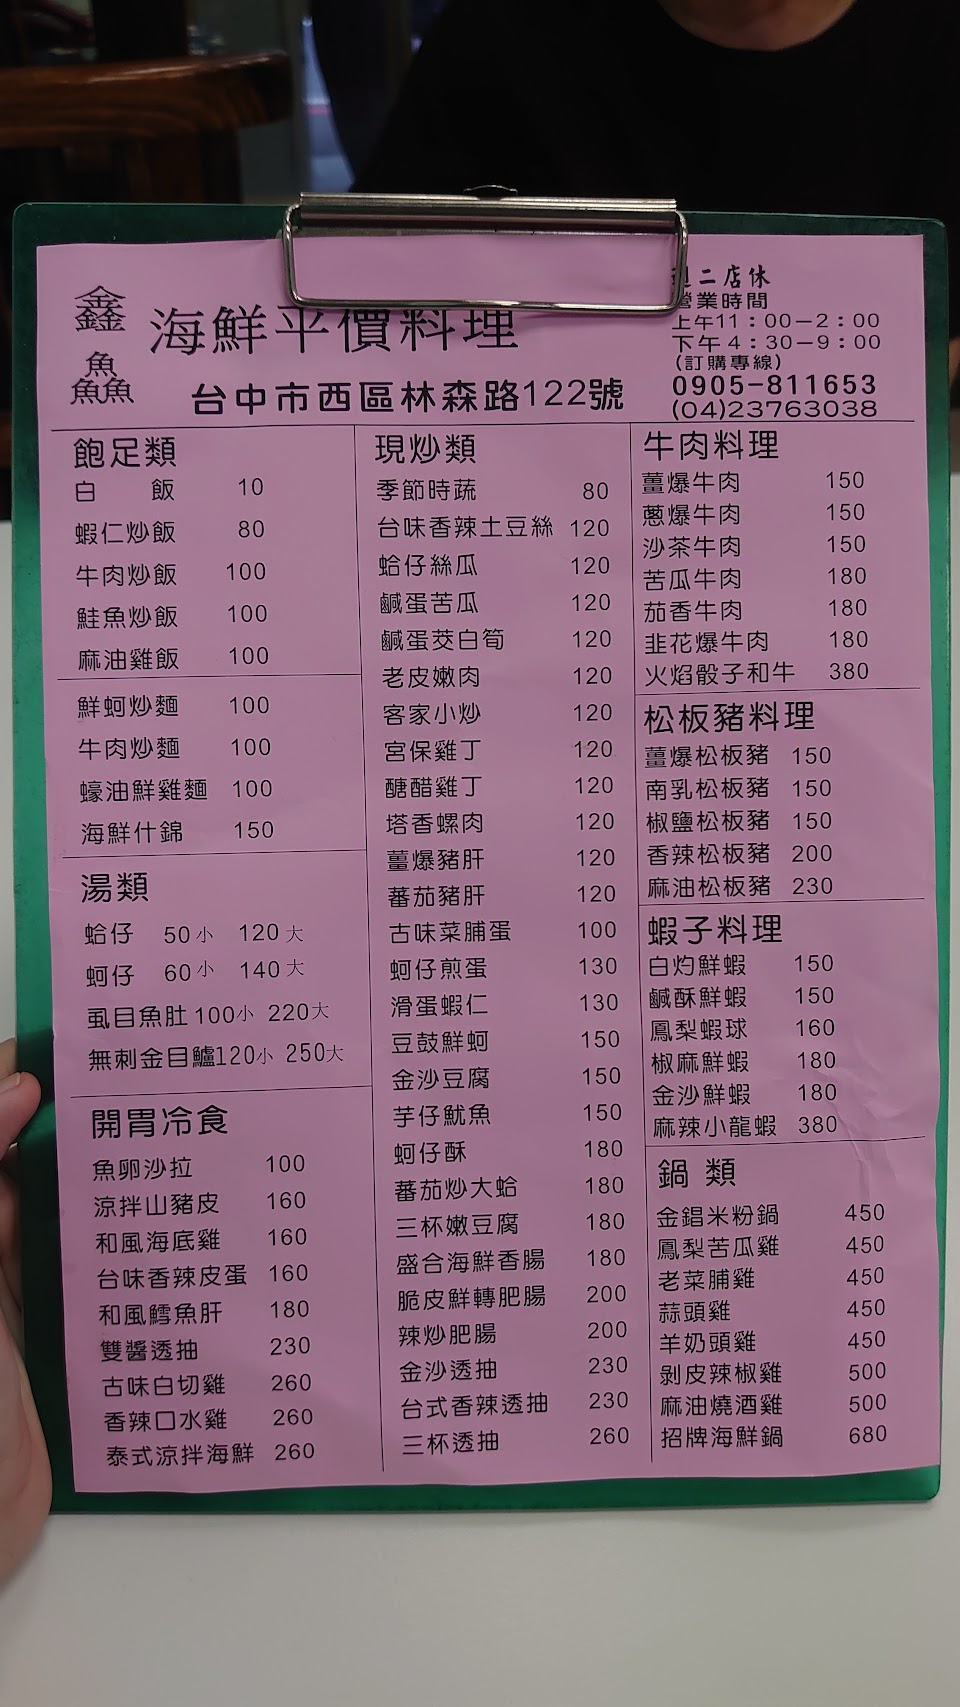 鑫
鱻
海鮮平價料理
台中市西區林森路122號
週二店休
營業時間
上午11：00－2：00
下午4：30－9：00
(訂購專線)
0905-811653
(04)23763038
飽足類
白 飯 10
蝦仁炒飯 80
牛肉炒飯 100
鮭魚炒飯 100
麻油雞飯 100
鮮蚵炒麵 100
牛肉炒麵 100
蠔油鮮雞麵 100
海鮮什錦 150
湯類
蛤仔 50小 120大
蚵仔 60小 140大
虱目魚肚 100小 220大
無刺金目鱸 120小 250大
開胃冷食
魚卵沙拉 100
涼拌山豬皮 160
和風海底雞 160
台味香辣皮蛋 160
和風鱈魚肝 180
雙醬透抽 230
古味白切雞 260
香辣口水雞 260
泰式涼拌海鮮 260
現炒類
季節時蔬 80
台味香辣土豆絲 120
蛤仔絲瓜 120
鹹蛋苦瓜 120
鹹蛋茭白筍 120
老皮嫩肉 120
客家小炒 120
宮保雞丁 120
醣醋雞丁 120
塔香螺肉 120
薑爆豬肝 120
蕃茄豬肝 120
古味菜脯蛋 100
蚵仔煎蛋 130
滑蛋蝦仁 130
豆鼓鮮蚵 150
金沙豆腐 150
芋仔魷魚 150
蚵仔酥 180
蕃茄炒大蛤 180
三杯嫩豆腐 180
盛合海鮮香腸 180
脆皮鮮轉肥腸 200
辣炒肥腸 200
金沙透抽 230
台式香辣透抽 230
三杯透抽 260
牛肉料理
薑爆牛肉 150
蔥爆牛肉 150
沙茶牛肉 150
苦瓜牛肉 180
茄香牛肉 180
韭花爆牛肉 180
火焰骰子和牛 380
松板豬料理
薑爆松板豬 150
南乳松板豬 150
椒鹽松板豬 150
香辣松板豬 200
麻油松板豬 230
蝦子料理
白灼鮮蝦 150
鹹酥鮮蝦 150
鳳梨蝦球 160
椒麻鮮蝦 180
金沙鮮蝦 180
麻辣小龍蝦 380
鍋 類
金錩米粉鍋 450
鳳梨苦瓜雞 450
老菜脯雞 450
蒜頭雞 450
羊奶頭雞 450
剝皮辣椒雞 500
麻油燒酒雞 500
招牌海鮮鍋 680